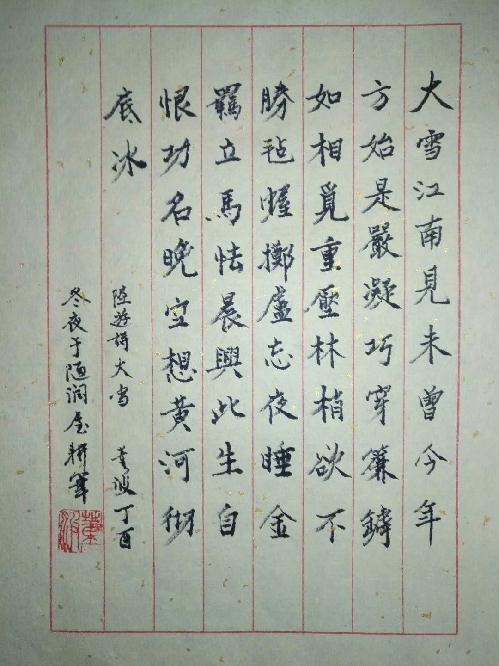 大雪江南見未曾今年
方始是嚴凝巧穿簾罅
如相覓重壓林梢欲不
勝毡幄擲盧忘夜睡金
羈立馬怯晨興此生自
恨功名晚空想黃河彻
底冰 陸游詩大雪 波丁酉
冬夜于陋润屋耕筆